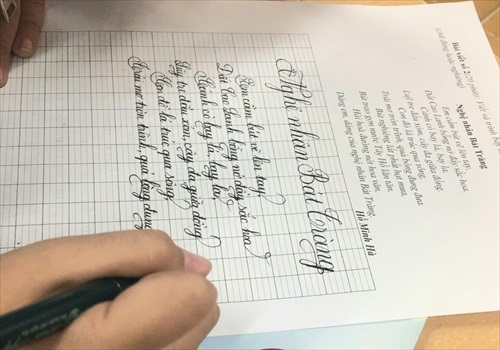 Bài viết số 2:(70 phút) Viết và trình bày
(chữ đứng hoặc nghiêng)
Nghệ nhân Bát Tràng
Em cầm bút vẽ lên tay,
Đất Cao Lanh bỗng nở đầy sắc hoa:
Cánh cò bay lả, bay la,
Luỹ tre đầu xóm, cây đa giữa đồng
Con đò lá trúc qua sông,
Trái mơ tròn trĩnh, quả bòng đung đưa.
Bút nghiêng lất phất hạt mưa,
Hài hoà đường nét hoa văn,
Dáng em, dáng của nghệ nhân Bát Tràng.
Hồ Minh Hà
Nghệ nhân Bát Tràng
Em cầm bút vẽ lên tay,
Đất Cao Lanh bỗng nở đầy sắc hoa
Cánh cò bay lả, bay la,
Lũy tre đầu xóm, cây đa giữa đồng
Con đò lá trúc qua sông,
Trái mơ tròn trĩnh, quả bòng đung